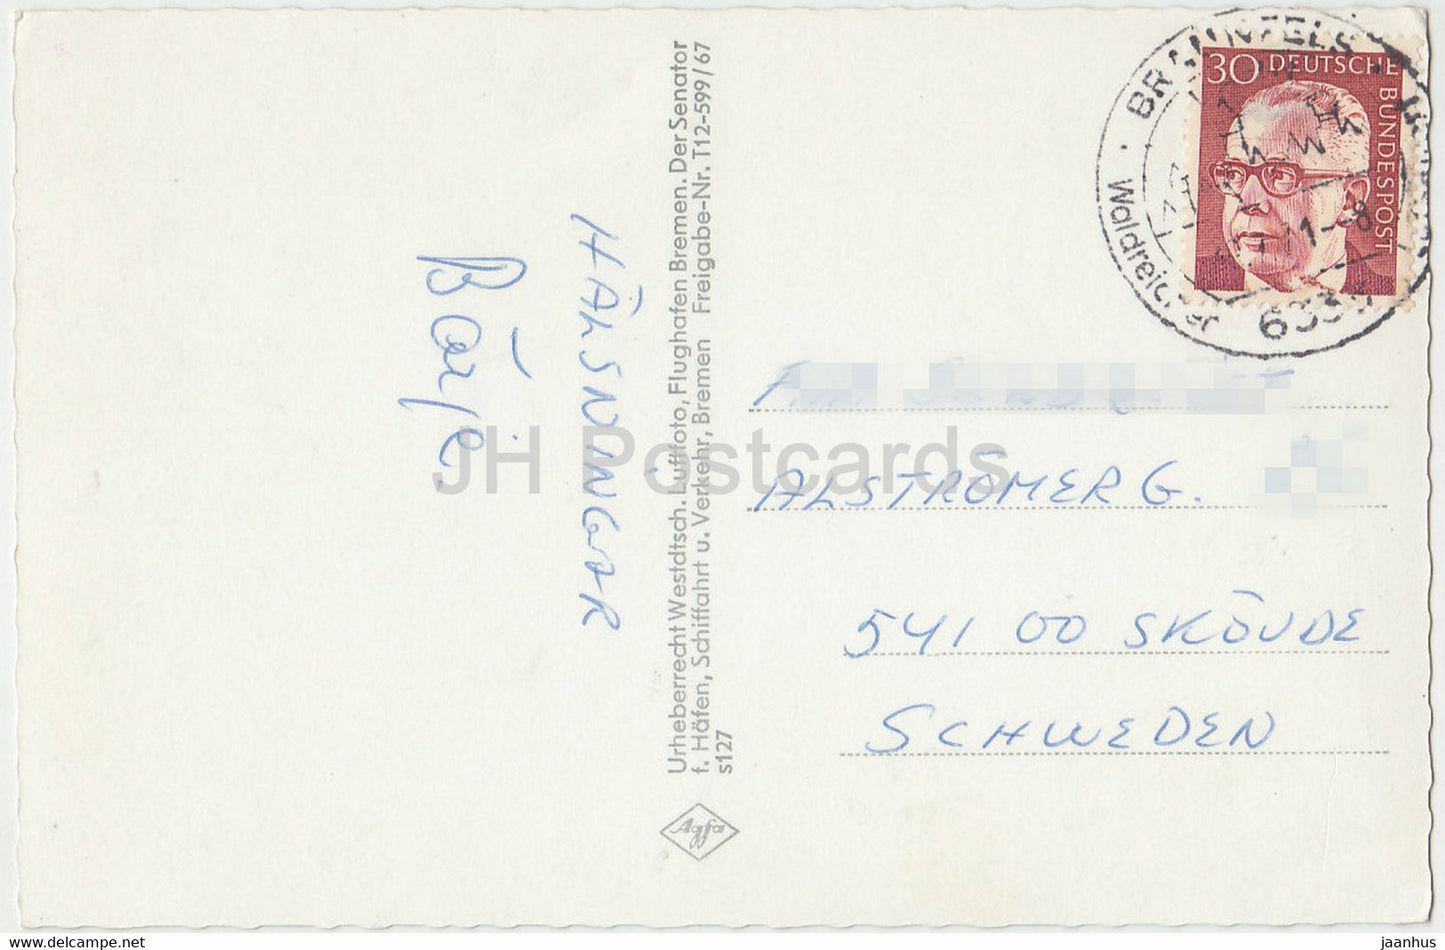 HÄLSNINGAR
Börje.
Urheberrecht Westdtsch. Luftfoto, Flughafen Bremen. Der Senator
f. Häfen, Schiffahrt u. Verkehr, Bremen Freigabe-Nr. T12-599/67
s127
Agfa
30 DEUTSCHE
BUNDESPOST
BRAUNFELS
Waldreicher
-8
633
ALSTRÖMERG.
541 00 SKÖVDE
SCHWEDEN
JH Postcards
www.delcampe.net
jaanhus